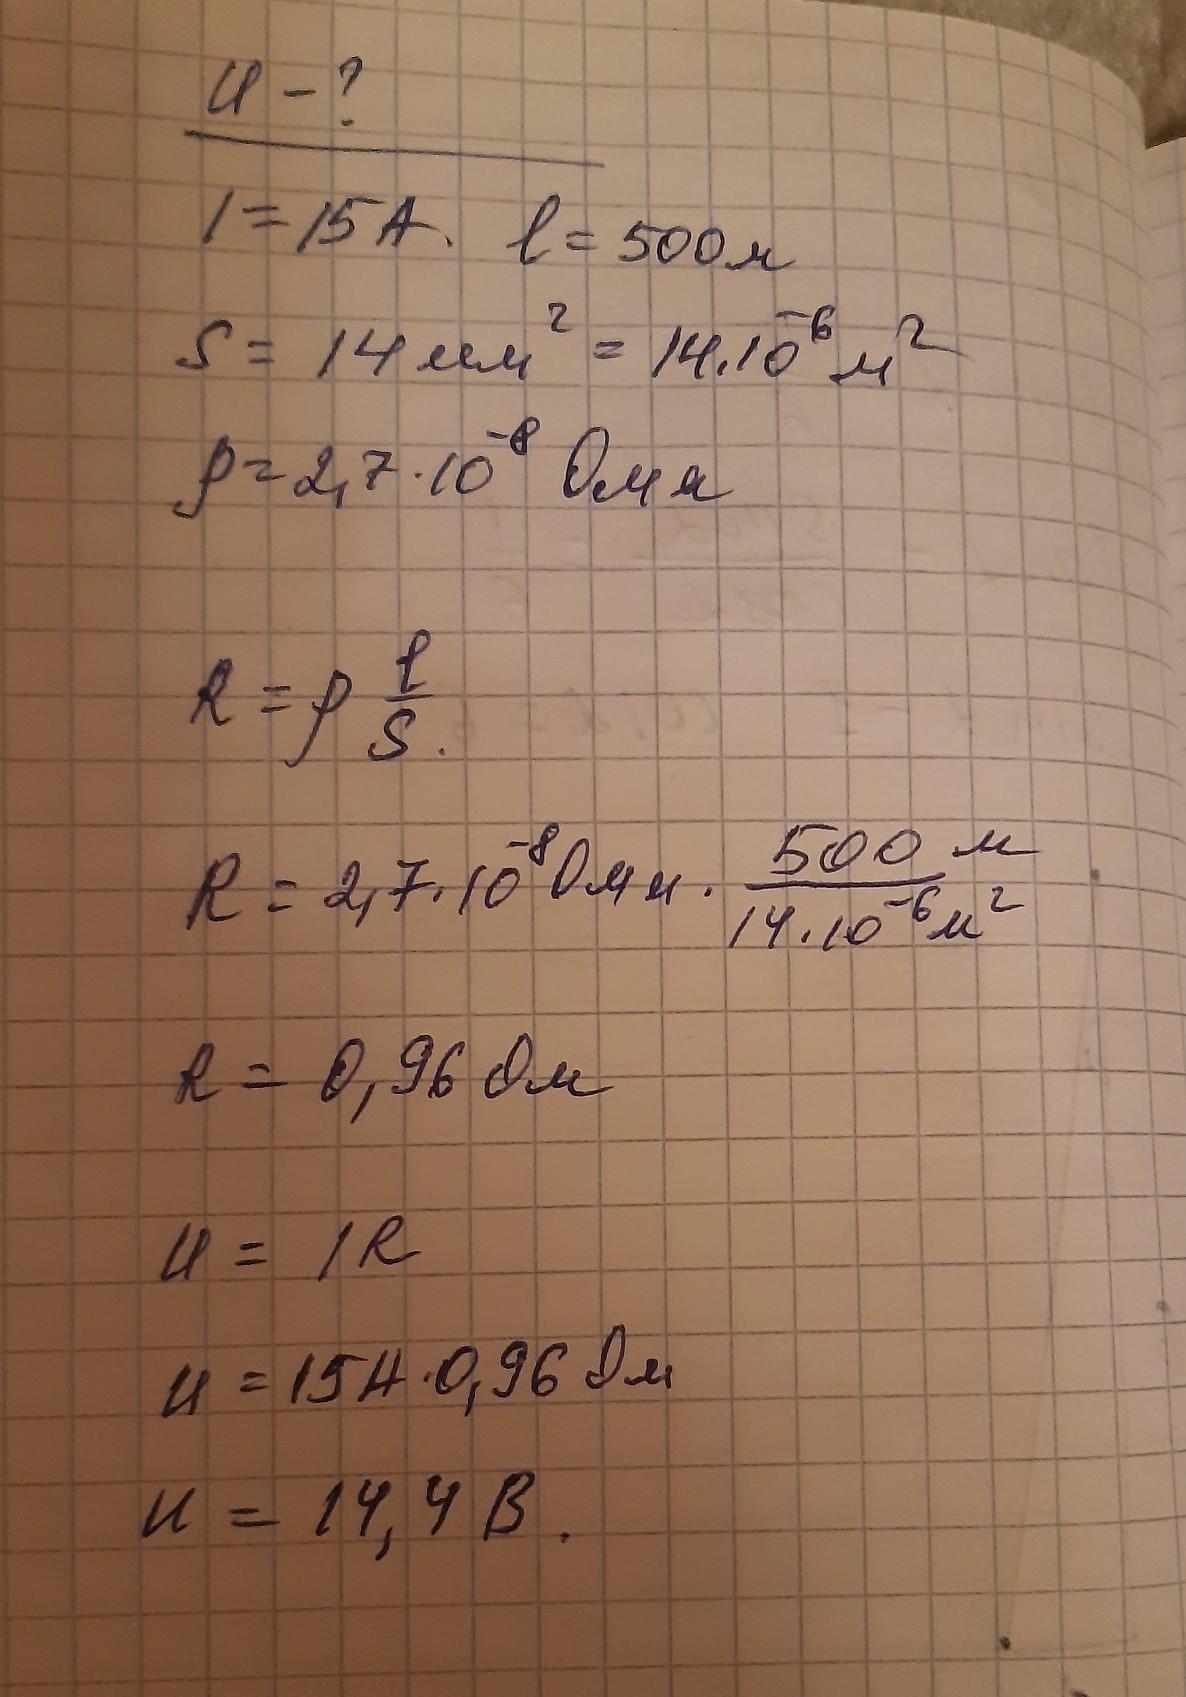 U - ?
I = 15 А. l = 500 м
S = 14 мм² = 14.10⁻⁶ м²
ρ = 2,7 · 10⁻⁸ Ом м
R = ρ l/S.
R = 2,7 · 10⁻⁸ Ом м · 500 м / 14.10⁻⁶ м²
R = 0,96 Ом
U = IR
U = 15А · 0,96 Ом
U = 14,4 В.